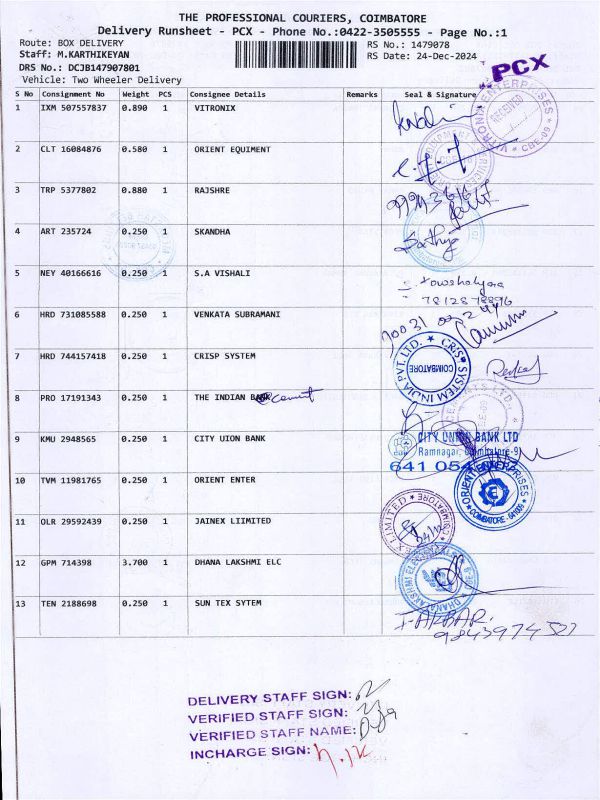 THE PROFESSIONAL COURIERS, COIMBATORE
Delivery Runsheet - PCX - Phone No.:0422-3505555 - Page No.:1
Route: BOX DELIVERY
RS No.: 1479078
Staff: M.KARTHIKEYAN
RS Date: 24-Dec-2024
DRS No.: DCJB147907801
PCX
Vehicle: Two Wheeler Delivery
S No Consignment No Weight PCS Consignee Details Remarks Seal & Signature
1 IXM 507557837 0.890 1 VITRONIX
2 CLT 16084876 0.580 1 ORIENT EQUIMENT
3 TRP 5377802 0.880 1 RAJSHRE
4 ART 235724 0.250 1 SKANDHA
Sathya
5 NEY 40166616 0.250 1 S.A VISHALI
7812878896
6 HRD 731085588 0.250 1 VENKATA SUBRAMANI
7 HRD 744157418 0.250 1 CRISP SYSTEM
CRISP SYSTEM INDIA PVT. LTD.
COIMBATORE
8 PRO 17191343 0.250 1 THE INDIAN
9 KMU 2948565 0.250 1 CITY UION BANK
CITY UNION BANK LTD
Ramnagar, Coimbatore-9
641 054
10 TVM 11981765 0.250 1 ORIENT ENTER
ORIENT ENTERPRISES
COIMBATORE
11 OLR 29592439 0.250 1 JAINEX LIIMITED
LIMITED COIMBATORE
12 GPM 714398 3.700 1 DHANA LAKSHMI ELC
13 TEN 2188698 0.250 1 SUN TEX SYTEM
AKBAR.
9843974327
DELIVERY STAFF SIGN:
VERIFIED STAFF SIGN:
VERIFIED STAFF NAME:
INCHARGE SIGN: